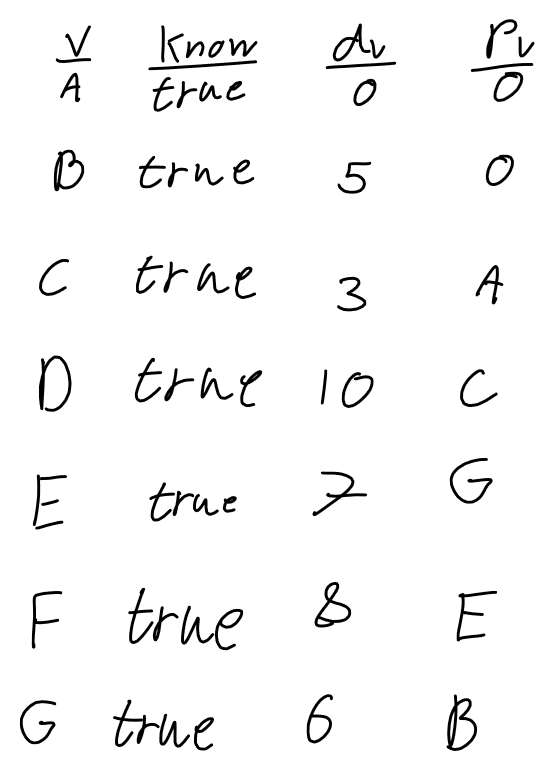 V Know dv Pv
A true 0 0
B true 5 0
C true 3 A
D true 10 C
E true 7 G
F true 8 E
G true 6 B